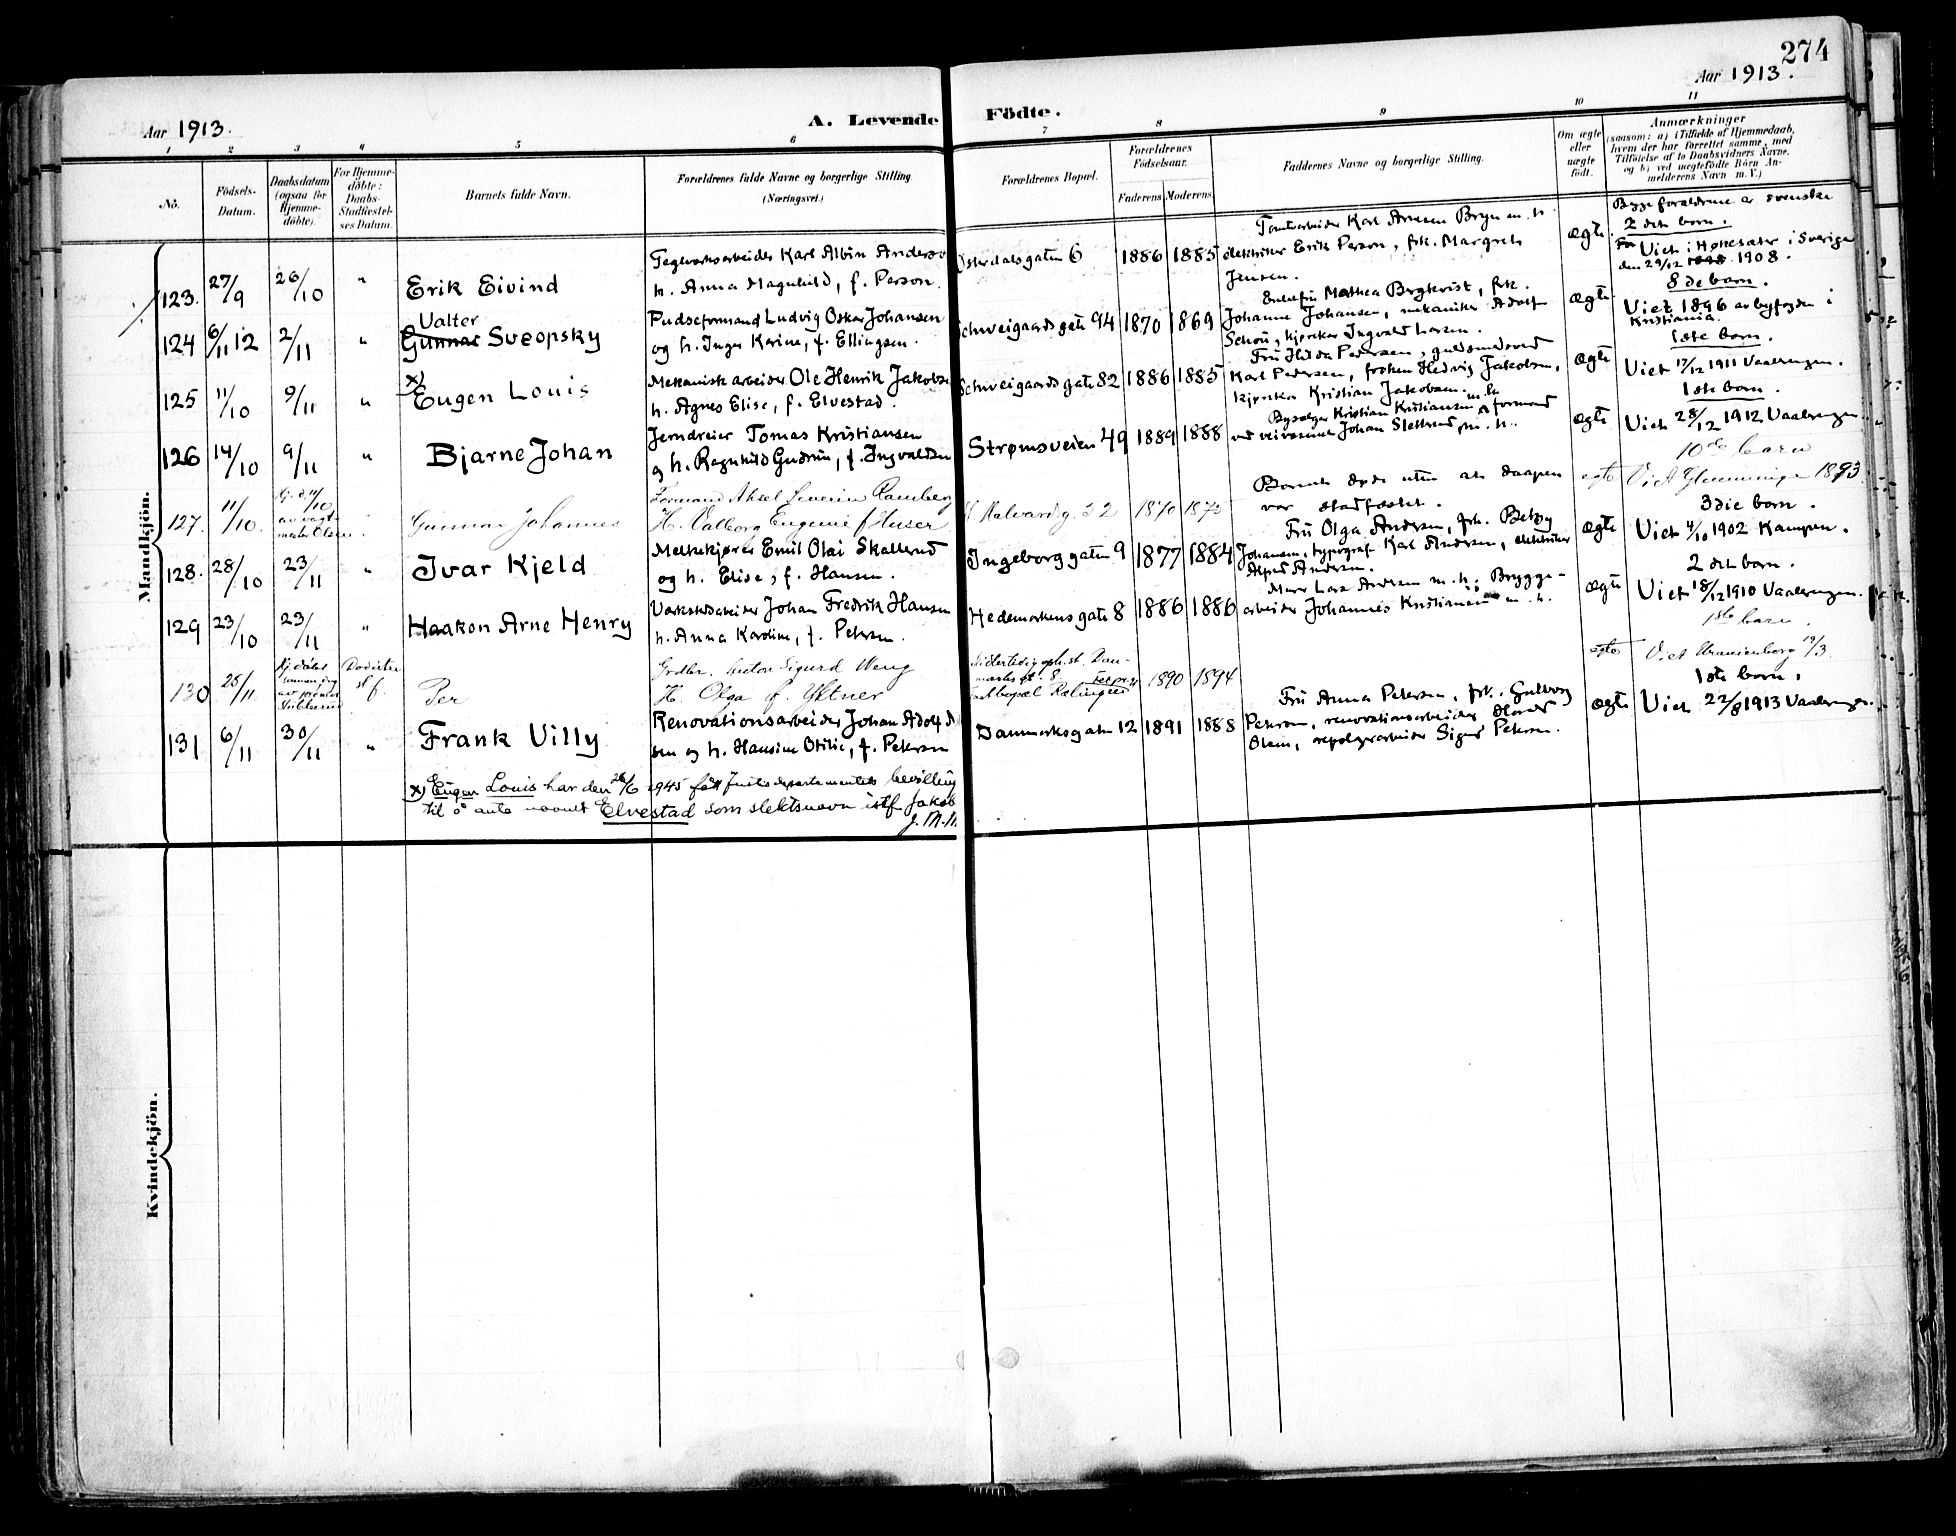 274
Aar 1913.
A. Levende Födte.
Aar 1913.
1 2 3 4 5 6 7 8 9 10 11
No.
Födsels-Datum.
Daabsdatum (ogsaa for Hjemmedöbte).
For Hjemmedöbte: Daabs-Stadfæstelses Datum.
Barnets fulde Navn.
Forældrenes fulde Navne og borgerlige Stilling.
(Næringsvei.)
Forældrenes Bopæl.
Forældrenes Födselsaar.
Faderens Moderens
Faddernes Navne og borgerlige Stilling.
Om ægte eller uægte födt.
Anmærkninger
(saasom: a) i Tilfælde af Hjemmedaab,
hvem der har forrettet samme, med
Tilföielse af to Daabsvidners Navne,
og b) ved uegtefödte Börn Anmelderens Navn m. V.)
Mandkjön.
123. 27/9 26/10 "
Erik Eivind
Teglverksarbeider Karl Albin Anderson
h. Anna Magnhild, f. Person.
Østerdalsgaten 6
1886 1885
Tomtearbeider Karl Arnesen Bryn m. h.
elektriker Erik Person, frk. Margrete
Jensen.
ægte.
Begge forældrene er svenske
2 det barn.
Viet i Hønesæter i Sverige
den 29/12 1898 1908.
124 6/11 12 2/11 "
Valter
Gunnar Sveopsky
Pudseformand Ludvig Oskar Johansen
og h. Inger Karine, f. Ellingsen.
Schweigaardsgate 94
1870 1869
Enkefru Mathea Bergkvist, frk.
Johanne Johansen, mekaniker Adolf
Schou, kjørekar Ingvald Larsen.
ægte
8 de barn.
Viet 1896 av byfogden i
Kristiania.
125 11/10 9/11 "
x)
Eugen Louis
Mekanisk arbeider Ole Henrik Jakobse
h. Agnes Elise, f. Elvestad.
Schweigaardsgate 82
1886 1885
Fru Hilda Pedersen, guldsmedsvend
Karl Pedersen, frøken Hedvig Jakobsen,
kjørekar Kristian Jakobsen.
ægte
1ste barn.
Viet 17/12 1911 Vaalerengen.
126 14/10 9/11 "
Bjarne Johan
Jerndreier Tomas Kristiansen
og h. Ragnhild Gudrun, f. Ingvaldsen
Strømsveien 49
1889 1888
Kristian Kristiansen m. h.
formand
ved veivæsenet Johan Slettend m. h.
ægte
1ste barn.
Viet 28/12 1912 Vaalerengen.
127. 11/10.
Gunnar Johannes
Formand Aksel Severin Ramberg
H. Valborg Eugenie f Huser
1870 1875
Barnet døde uten at daapen
var stadfæstet.
egte
10de barn
Viet Glemminge 1893.
128. 28/10 23/11 "
Ivar Kjeld
Melkekjører Emil Olai Skallerud
og h. Elise, f. Hansen.
Ingeborggaten 9
1877 1884
Fru Olga Andersen, frk. Betzy
Johansen, typograf Karl Andersen, elektriker
Alfred Andersen.
ægte
3die barn.
Viet 4/10 1902 Kampen.
129 23/10 23/11 "
Haakon Arne Henry
Verkstedsarbeider Johan Fredrik Hansen
h. Anna Karoline, f. Petersen.
Hedemarkensgate 8
1886 1886
Murer Lars Andersen m. h. Bryggearbeider Johannes Kristiansen m. h.
ægte
2 det barn.
Viet 18/12 1910 Vaalerengen.
130 25/11
Per
Sigurd Weng
H. Olga f. Yttner
1890 1894
egte
1ste barn.
Viet Uranienborg 19/3.
131 6/11 30/11 "
Frank Villy
Renovationsarbeider Johan Adolf
sen og h. Hansine Otilie, f. Petersen
Danmarksgaten 12
1891 1888
Fru Anna Petersen, frk. Gulborg
Petersen, renovationsarbeider
Olsen, repslagerarbeider Sigurd Petersen.
ægte
1ste barn.
Viet 22/8 1913 Vaalerengen.
x) Eugen Louis har den 26/6 1945 fått Justisdepartementets bevilling
til å anta navnet Elvestad som slektsnavn istf Jakob
J. M. H.
Kvindekjön.